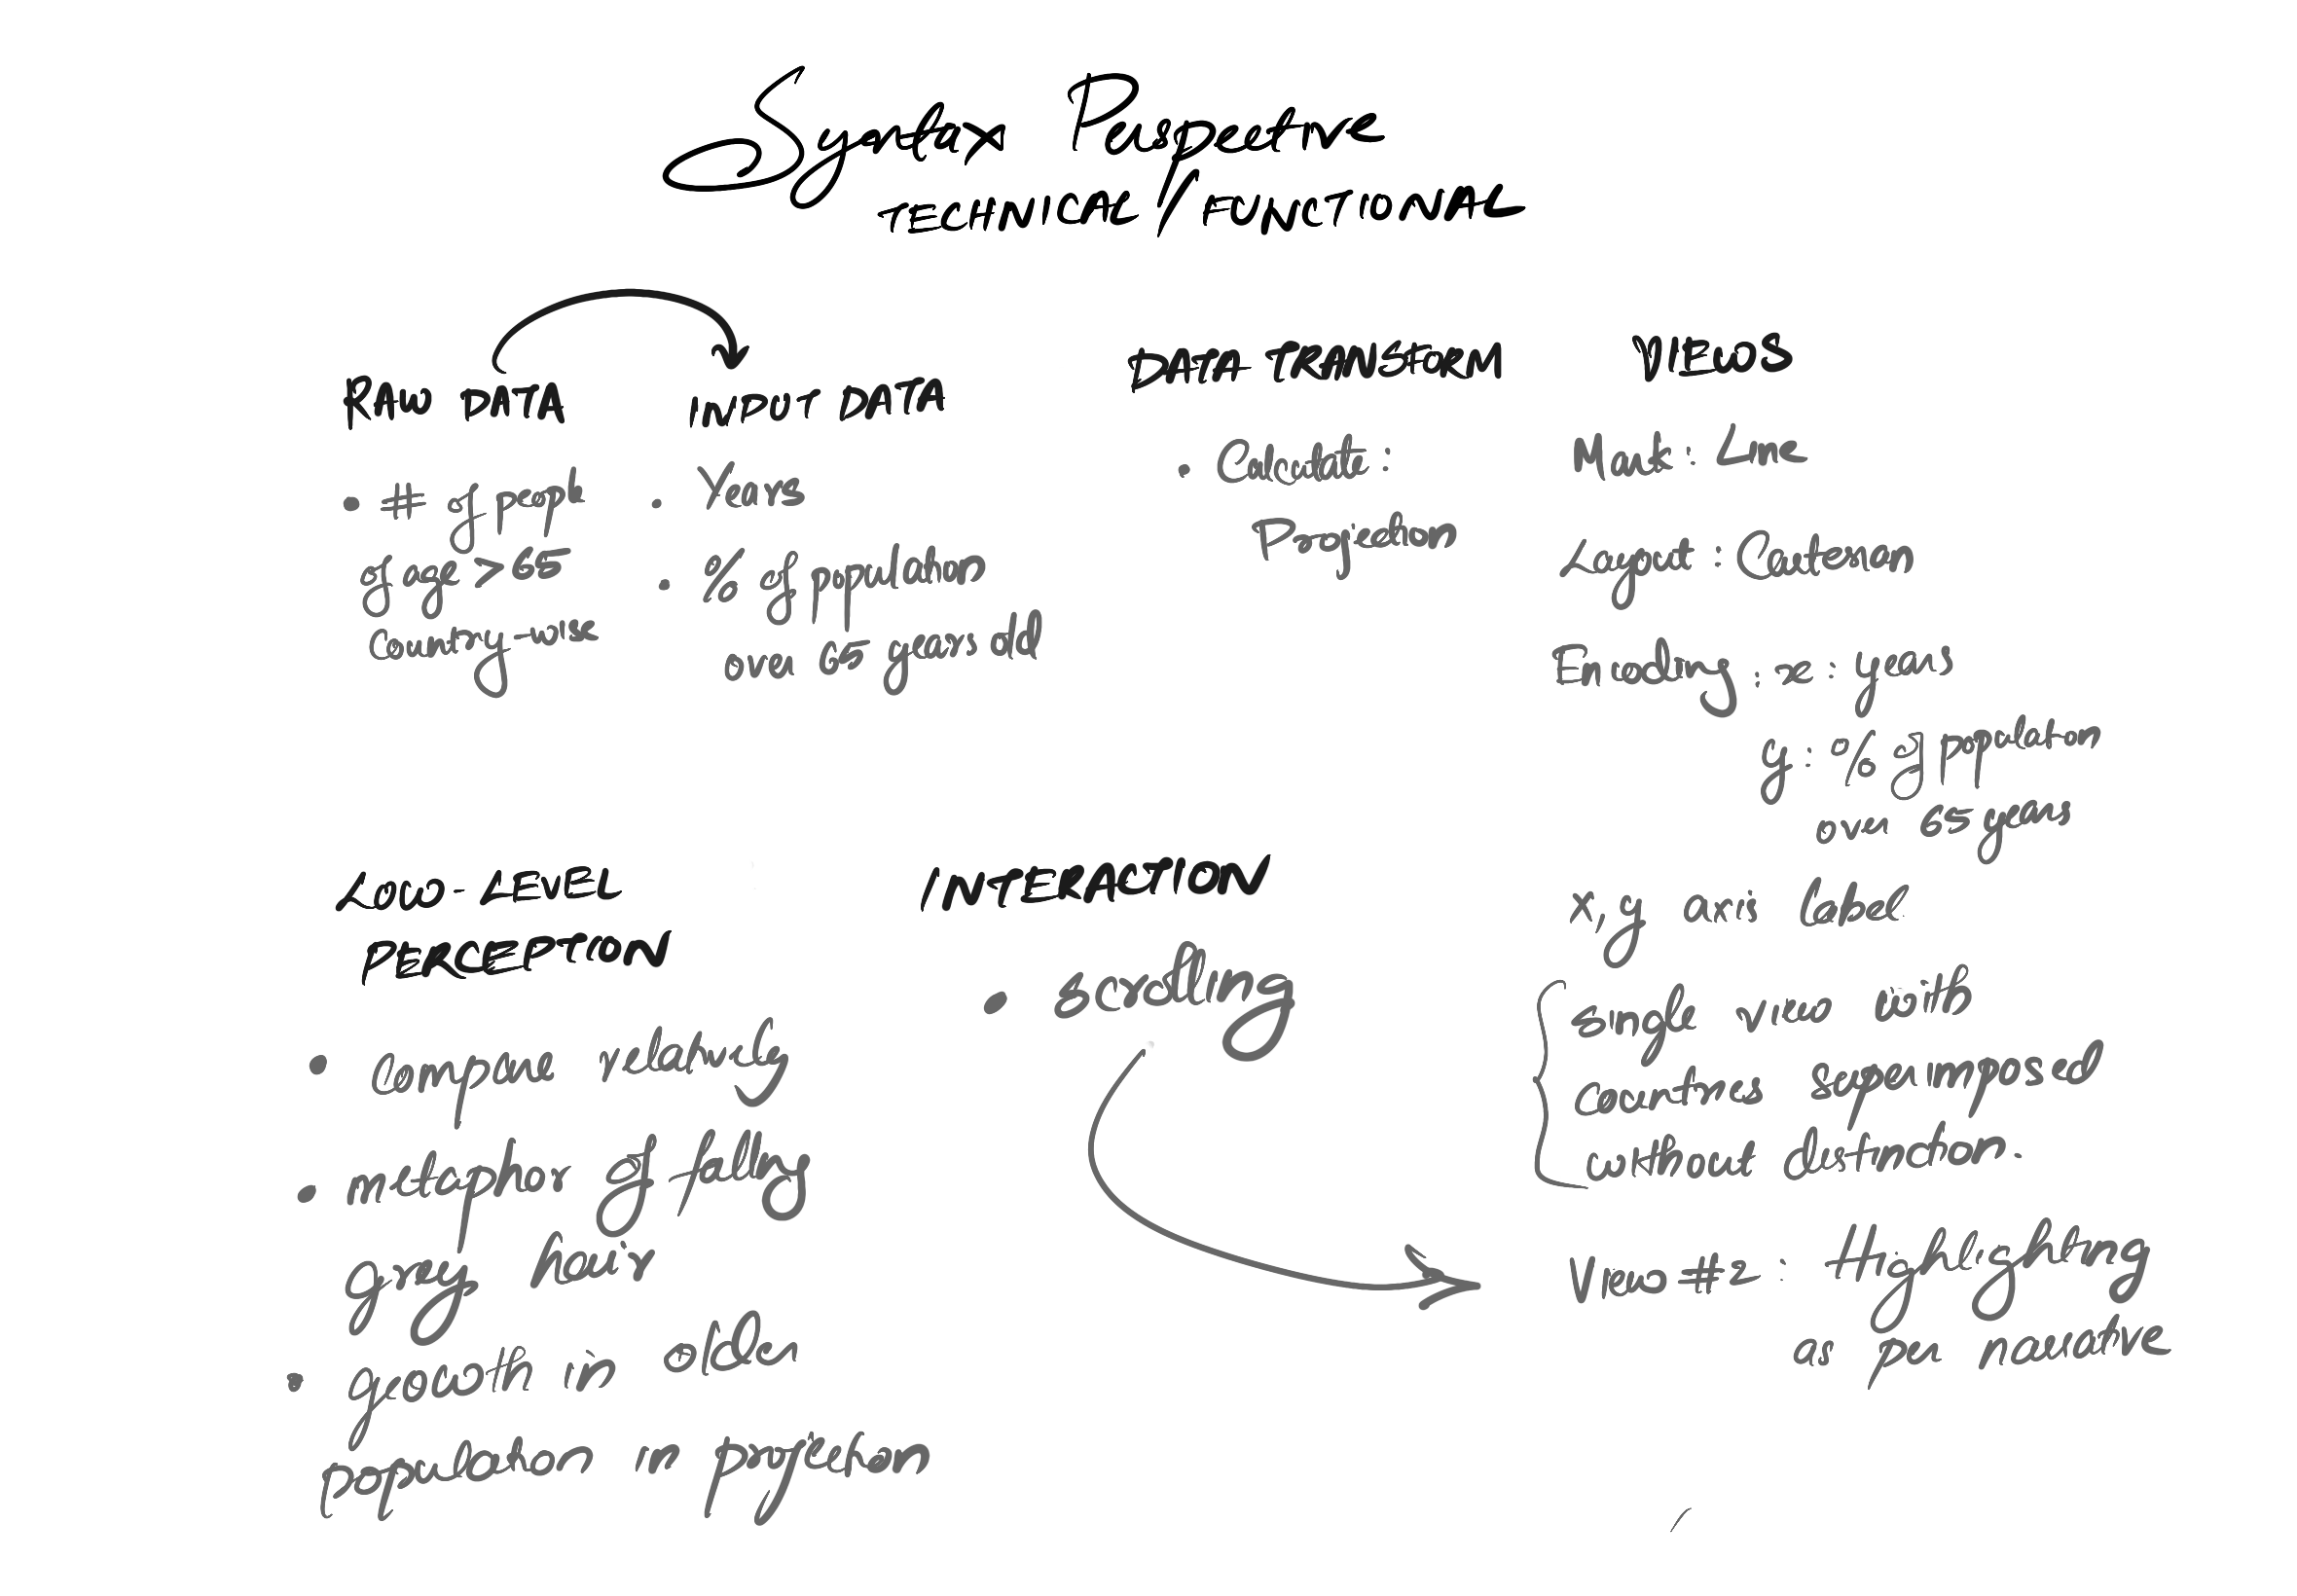 Syntax Perspective
TECHNICAL / FUNCTIONAL
RAW DATA
• # of people
of age > 65
Country-wise
INPUT DATA
• Years
• % of population
over 65 years old
DATA TRANSFORM
• Calculate :
Projection
VIEWS
Mark : Line
Layout : Cartesian
Encoding : x : years
y : % of population
over 65 years
x, y axis label
single view with
countries superimposed
without distinction.
View #2 : Highlighting
as per narrative
LOW-LEVEL
PERCEPTION
• compare relatively
• metaphor of falling
grey hair
• growth in older
population in projection
INTERACTION
• scrolling